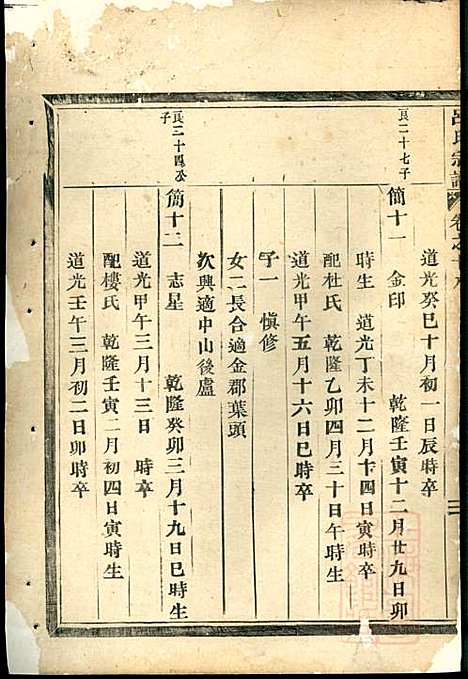 呂氏宗譜
卷之十八
道光癸巳十月初一日辰時卒
良二十七子
簡十一 金印 乾隆壬寅十二月廿九日卯
時生 道光丁未十二月十四日寅時卒
配杜氏 乾隆乙卯四月三十日午時生
道光甲午五月十六日巳時卒
子一 愼修
女二長合適金郡葉頭
次興適中山後盧
良二十四公子
簡十二 志星 乾隆癸卯三月十九日巳時生
道光甲午三月十三日 時卒
配樓氏 乾隆壬寅二月初四日寅時生
道光壬午三月初二日卯時卒